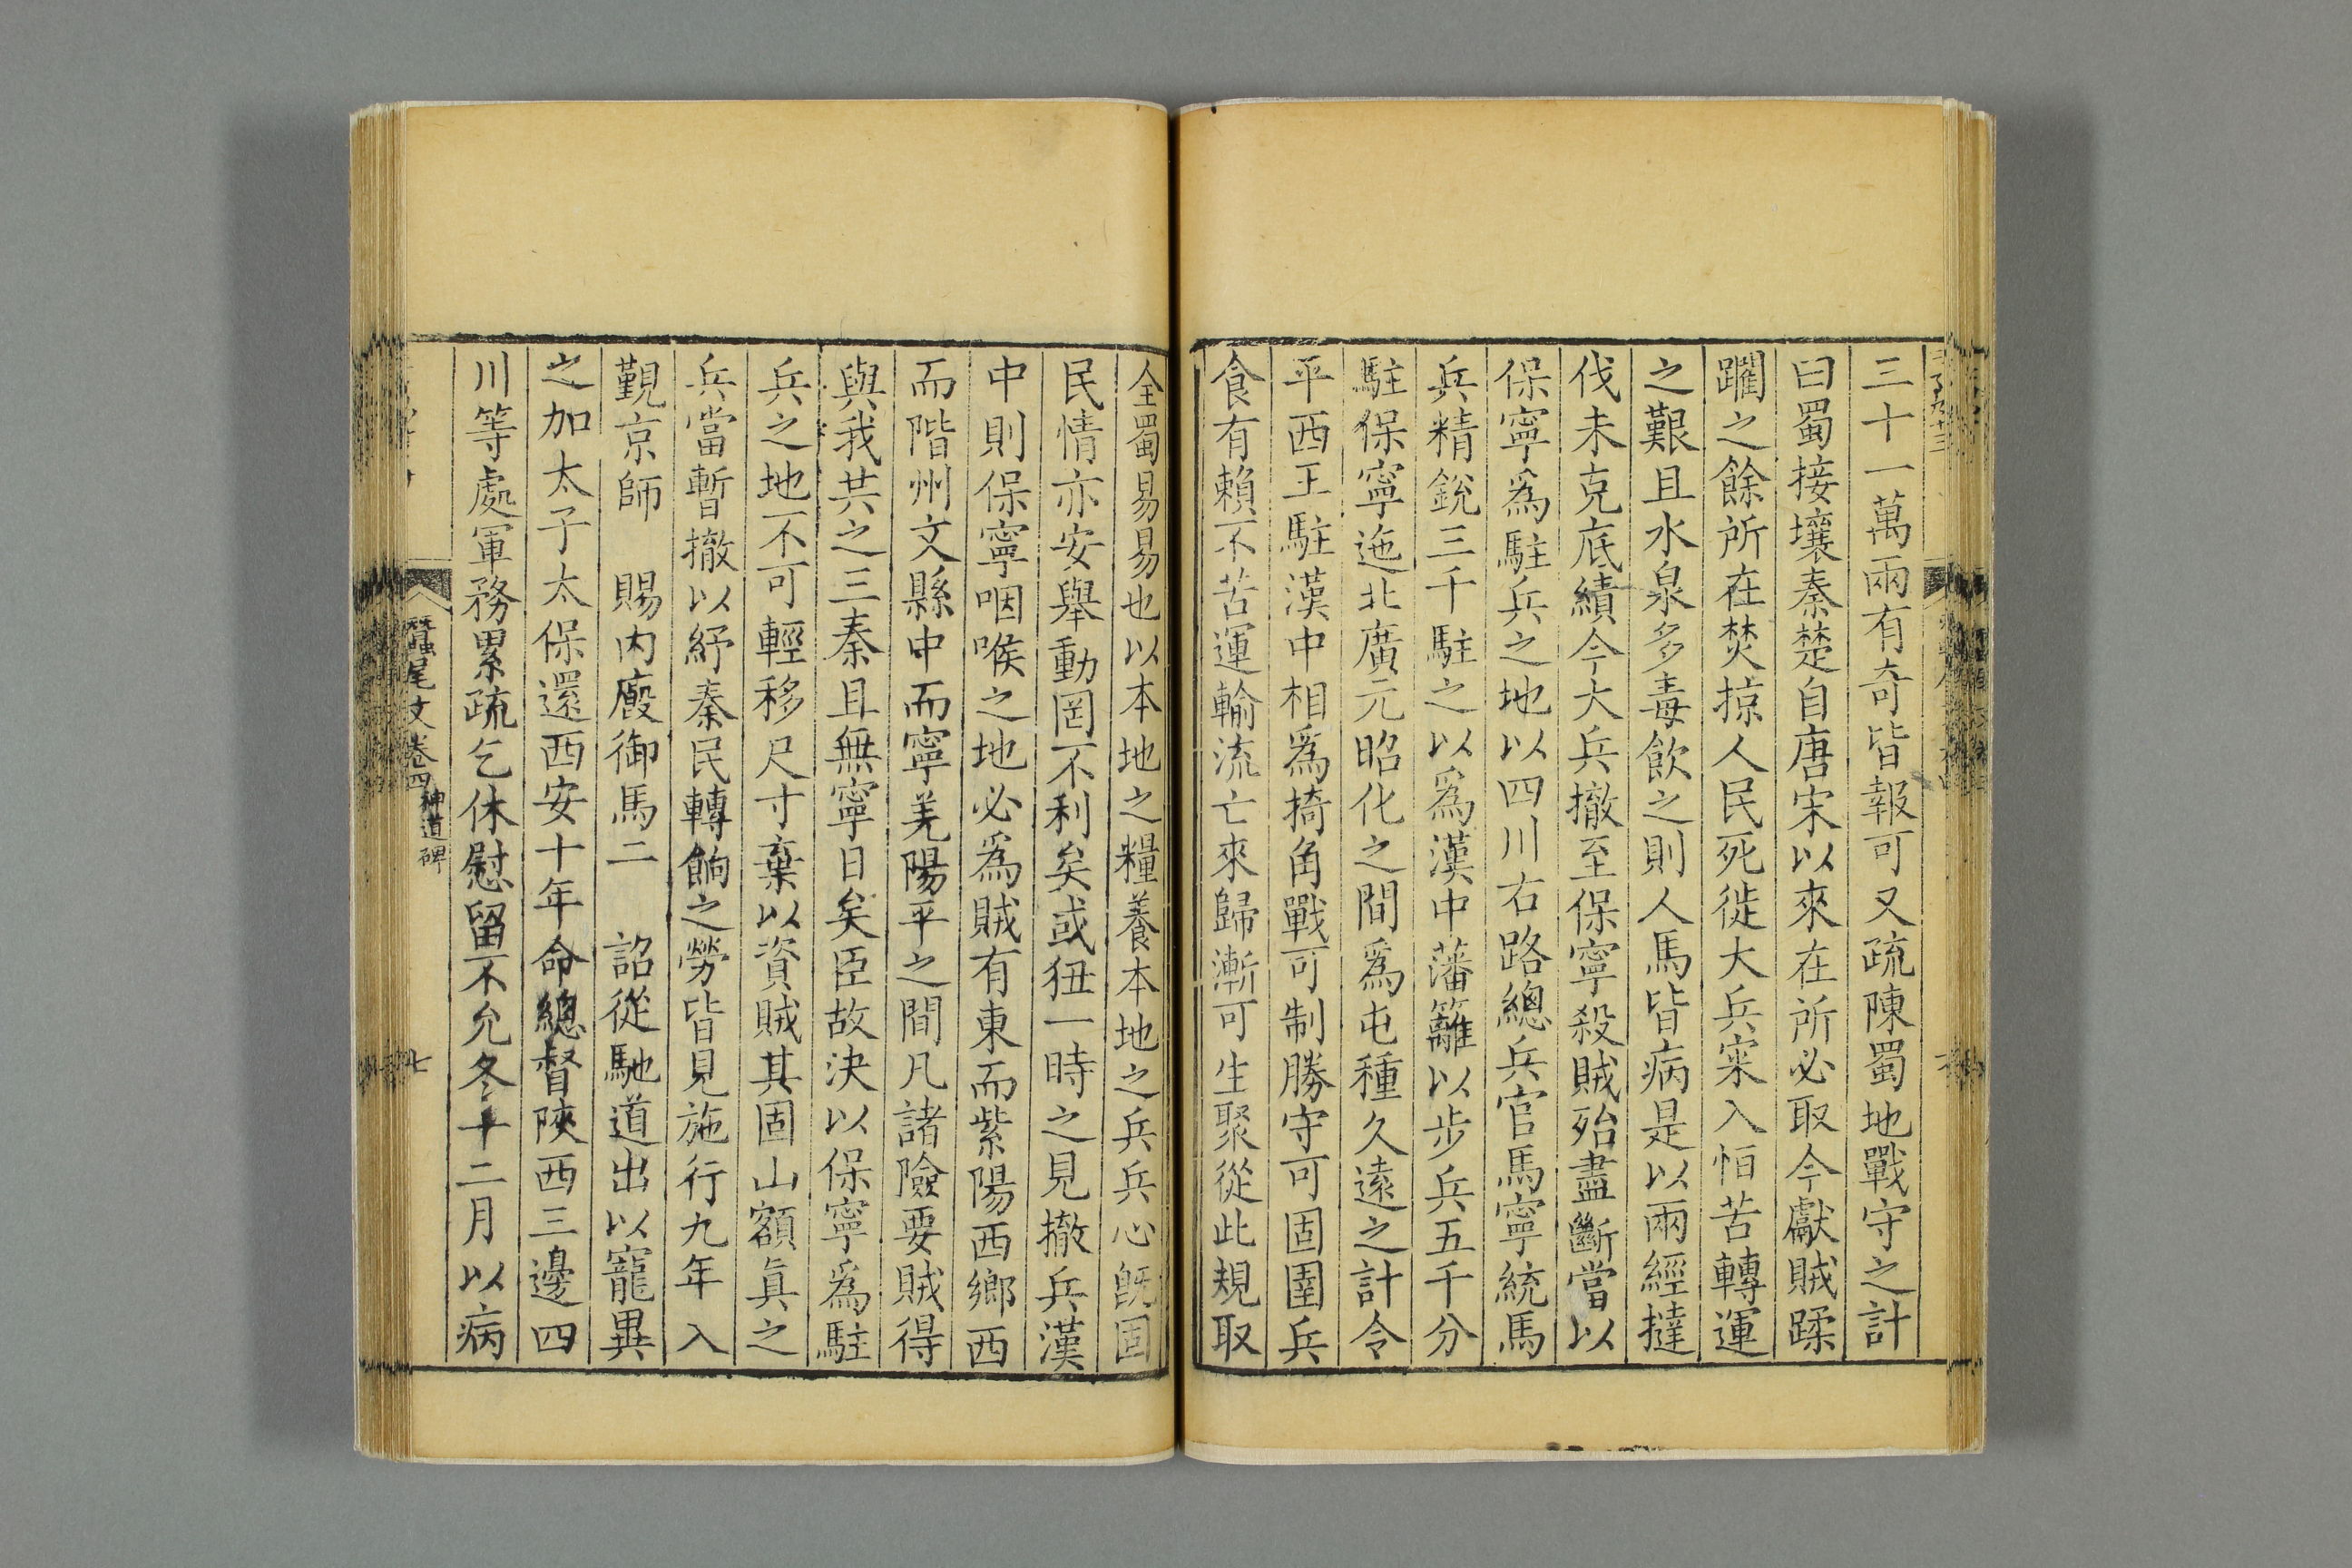 三十一萬兩有奇皆報可又疏陳蜀地戰守之計
曰蜀接壤秦楚自唐宋以來在所必取今獻賊蹂
躙之餘所在焚掠人民死徙大兵寀入怕苦轉運
之艱且水泉多毒飲之則人馬皆病是以兩經撻
伐未克底績今大兵撤至保寧殺賊殆盡斷當以
保寧爲駐兵之地以四川右路總兵官馬寧統馬
兵精銳三千駐之以爲漢中藩籬以步兵五千分
駐保寧迤北廣元昭化之間爲屯種久遠之計令
平西王駐漢中相爲掎角戰可制勝守可固圉兵
食有賴不苦運輸流亡來歸漸可生聚從此規取
全蜀易易也以本地之糧養本地之兵兵心旣固
民情亦安舉動罔不利矣或狃一時之見撤兵漢
中則保寧咽喉之地必爲賊有東而紫陽西鄉西
而階州文縣中而寧羌陽平之間凡諸險要賊得
與我共之三秦且無寧日矣臣故決以保寧爲駐
兵之地不可輕移尺寸棄以資賊其固山額眞之
兵當暫撤以紓秦民轉餉之勞皆見施行九年入
覲京師 賜內廐御馬二 詔從馳道出以寵異
之加太子太保還西安十年命總督陝西三邊四
川等處軍務累疏乞休慰留不允冬十二月以病
蠶尾文卷四 神道碑
七